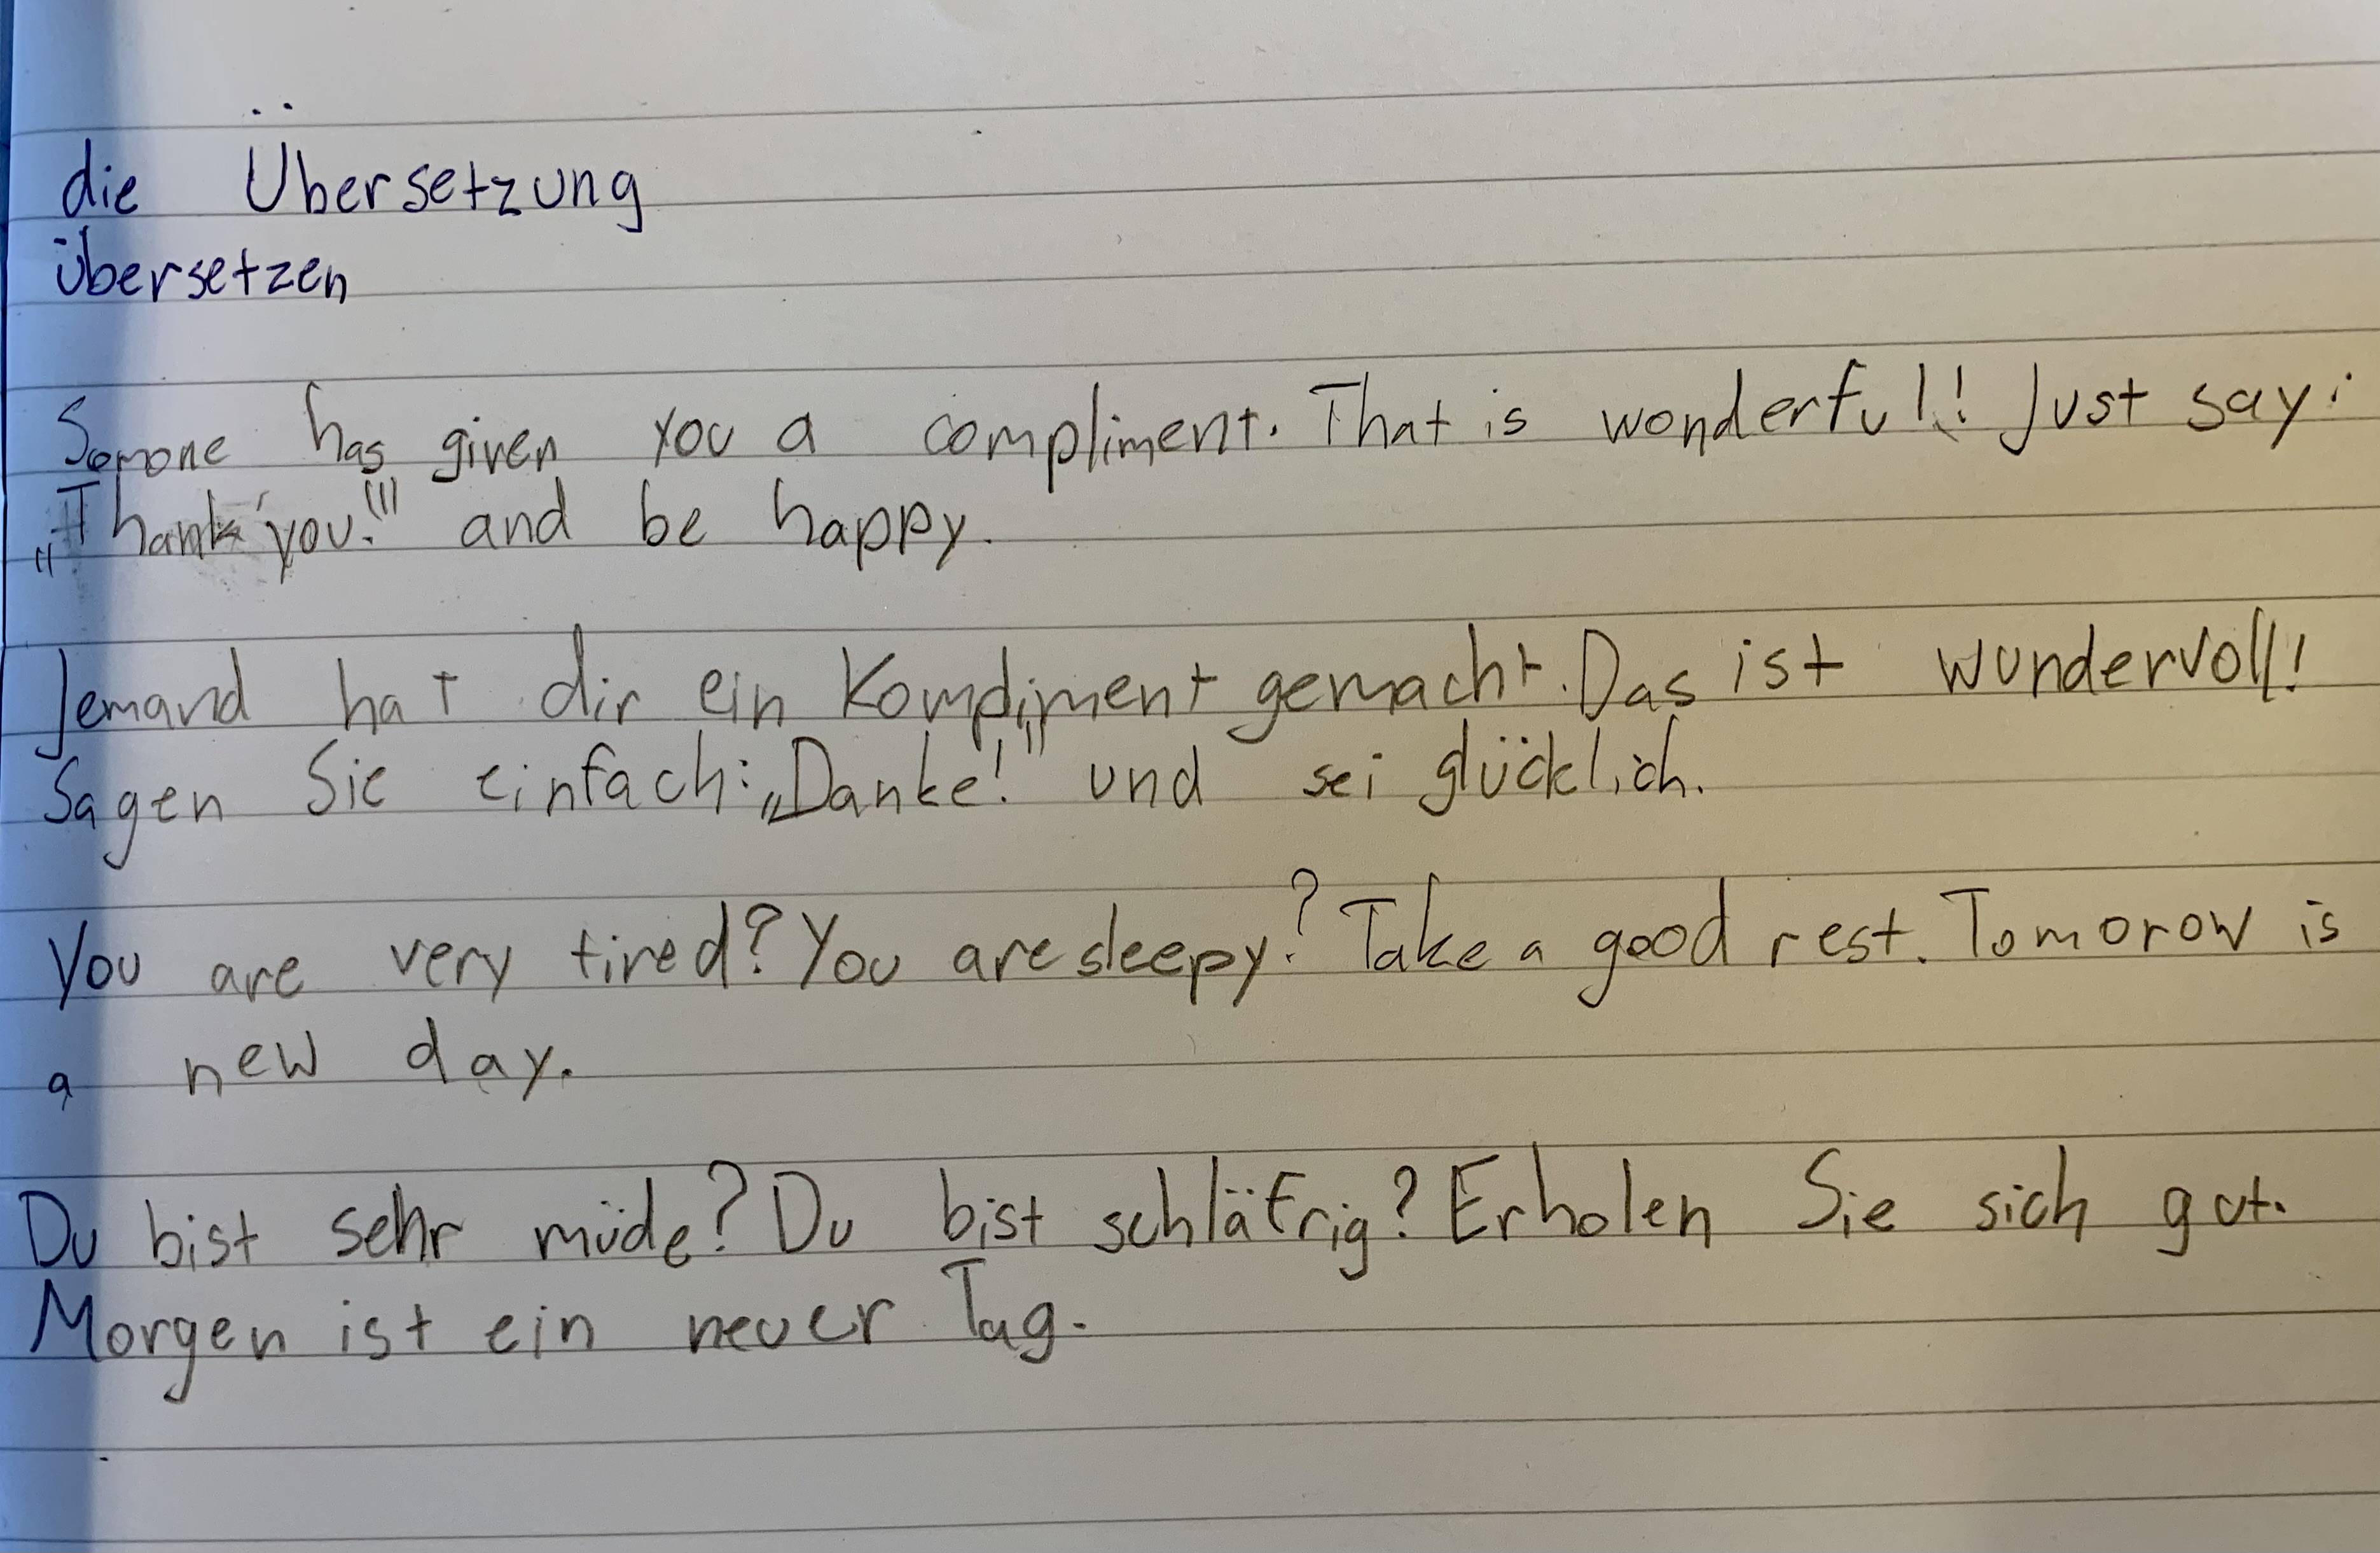 die Übersetzung
übersetzen
Somone has given you a compliment. That is wonderful! Just say:
„Thank you!" and be happy.
Jemand hat dir ein Kompliment gemacht. Das ist wundervoll!
Sagen Sie einfach: „Danke!" und sei glücklich.
You are very tired? You are sleepy? Take a good rest. Tomorow is
a new day.
Du bist sehr müde? Du bist schläfrig? Erholen Sie sich gut.
Morgen ist ein neuer Tag.